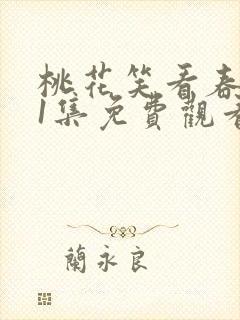 桃花笑看春
1集免費觀看
蘭永良